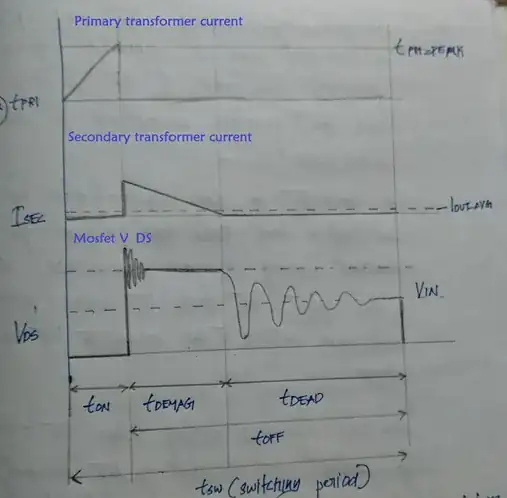 Primary transformer current
tPRI-PEAK
tPRI
Secondary transformer current
ISEC
IOUT AVG
Mosfet V DS
VIN
VDS
tON
tDEMAG
tDEAD
tOFF
tsw (switching period)